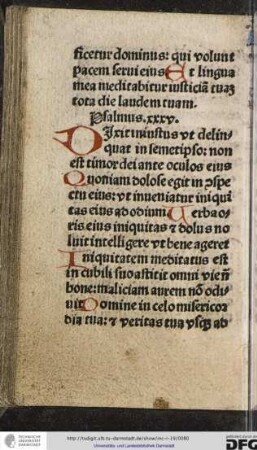 ficetur dominus: qui volunt
pacem serui eius Et lingua
mea meditabitur iusticiā tuaꝫ
tota die laudem tuam.
Psalmus. xxxv.
DIxit iniustus vt delin-
quat in semetipso: non
est timor dei ante oculos eius
Quoniam dolose egit in ↄspe
ctu eius: vt inueniatur iniqui
tas eius ad odium Uerba o-
ris eius iniquitas ⁊ dolus no
luit intelligere vt bene ageret
Iniquitatem meditatus est
in cubili suo astitit omni vie nō
bone: maliciam autem nō odi
uit Domine in celo misericor
dia tua: ⁊ veritas tua vsqꝫ ad
http://tudigit.ulb.tu-darmstadt.de/show/inc-i-19/0080
Universitäts- und Landesbibliothek Darmstadt
TECHNISCHE
UNIVERSITÄT
DARMSTADT
DFG